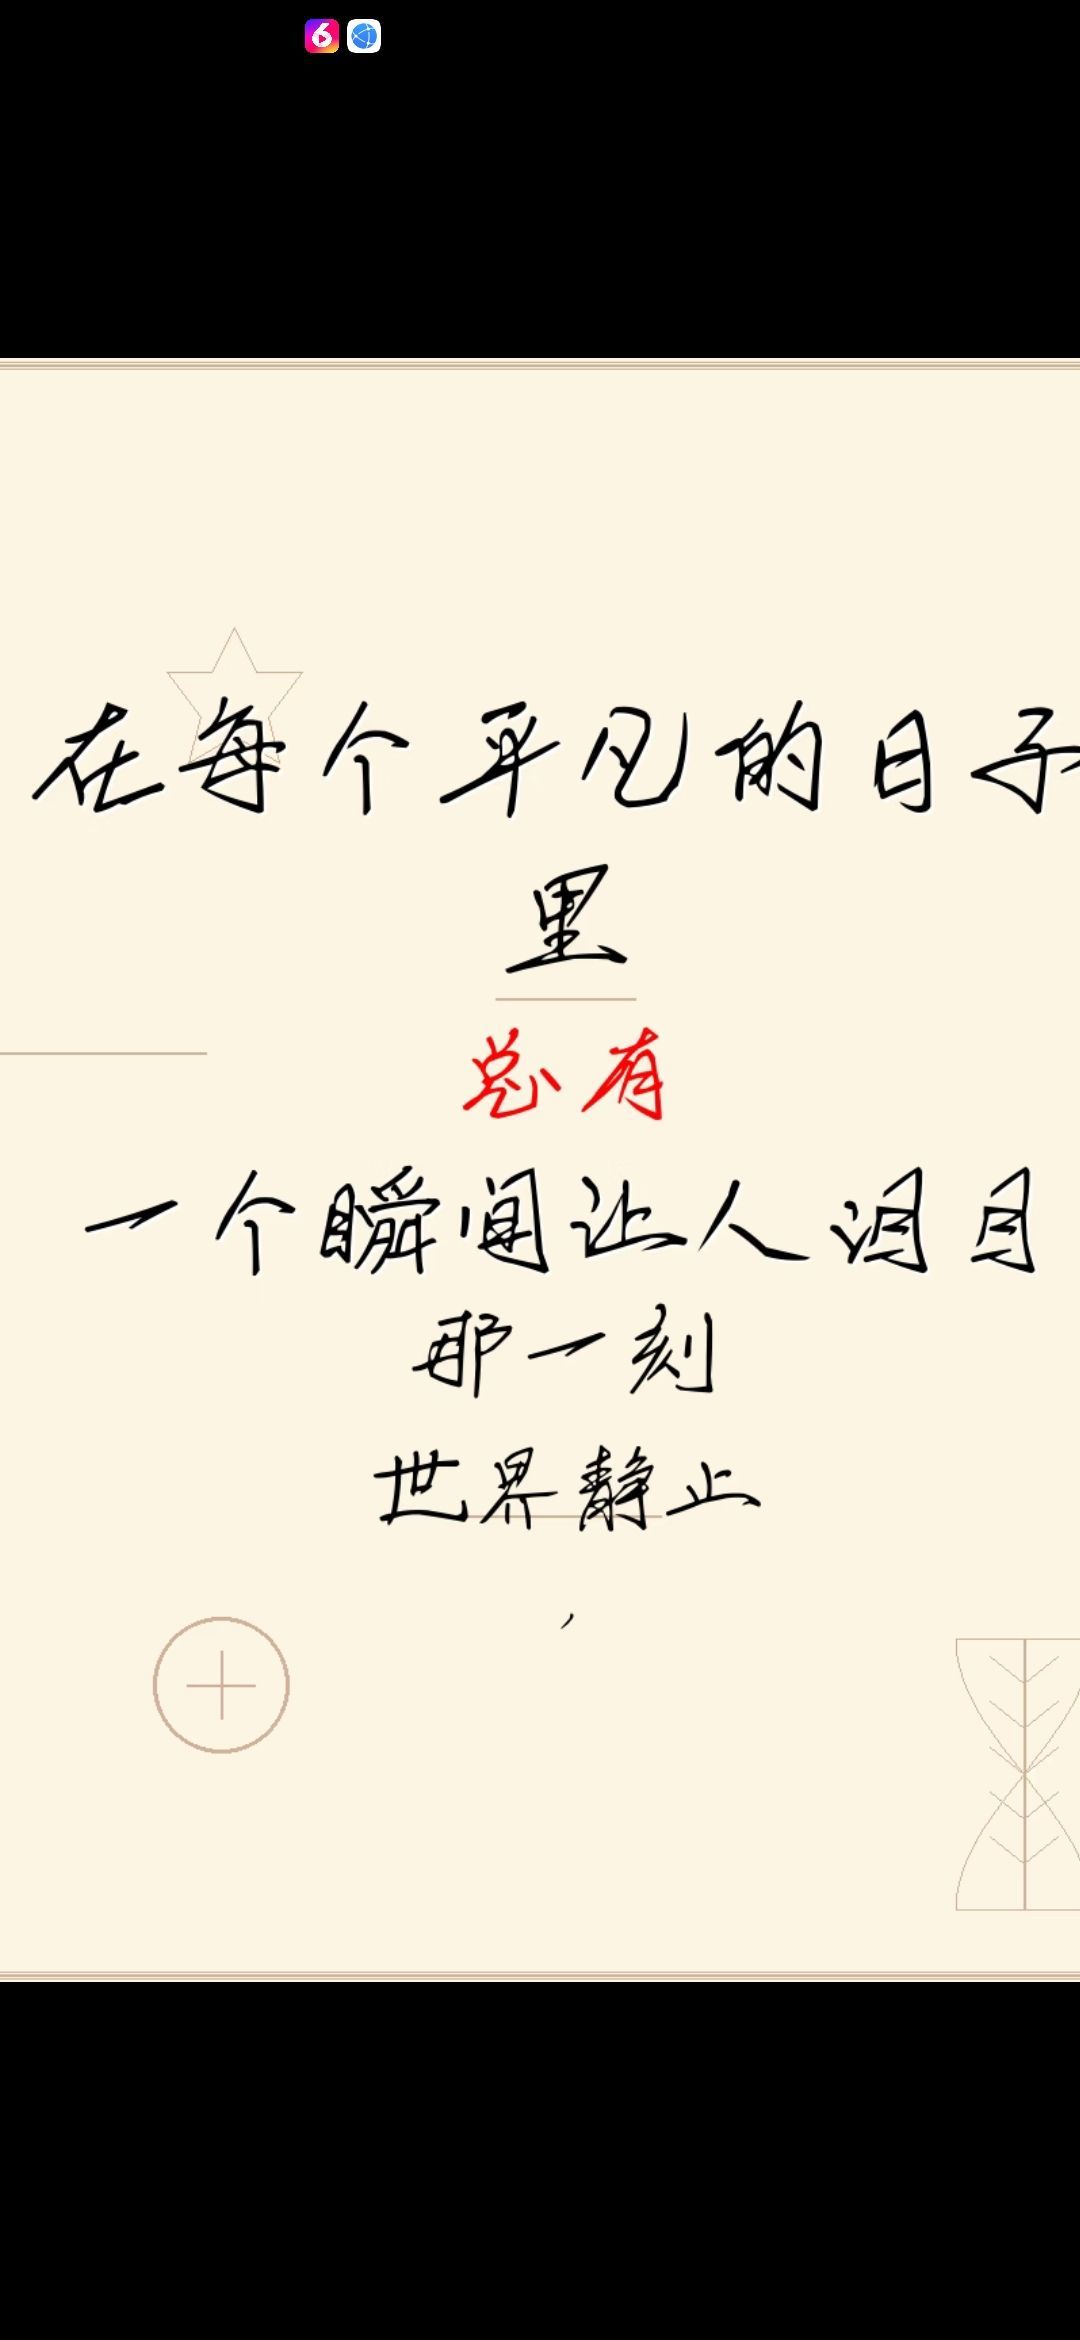 在每个平凡的日子
里
总有
一个瞬间让人泪目
那一刻
世界静止
，